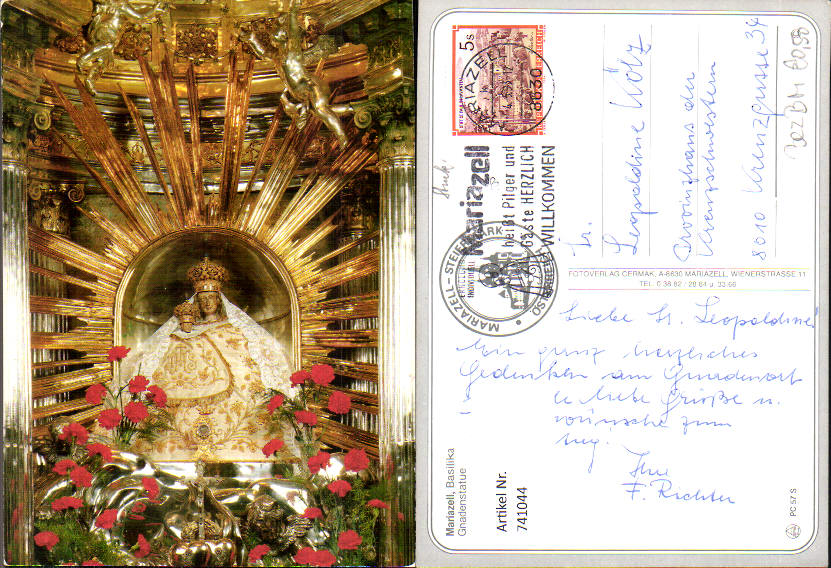 5 S
MARIAZELL
8630
Mariazell
heißt Pilger und
Gäste HERZLICH
WILLKOMMEN
MARIAZELL – STEIERMARK
ÖSTERREICH
Sr.
Leopoldine
Provinzhaus der
Kreuzschwestern
8010 Kreuzgasse 34
FOTOVERLAG CERMAK, A-8630 MARIAZELL, WIENERSTRASSE 11
TEL. 0 38 82 / 28 64 u. 33 66
Liebe Sr. Leopoldine!
Ein ganz herzliches
Gedenken am Gnadenort
liebe Grüße u.
wünsche zum
Ihre
F. Richter
Mariazell, Basilika
Gnadenstatue
Artikel Nr.
741044
PC 57 S